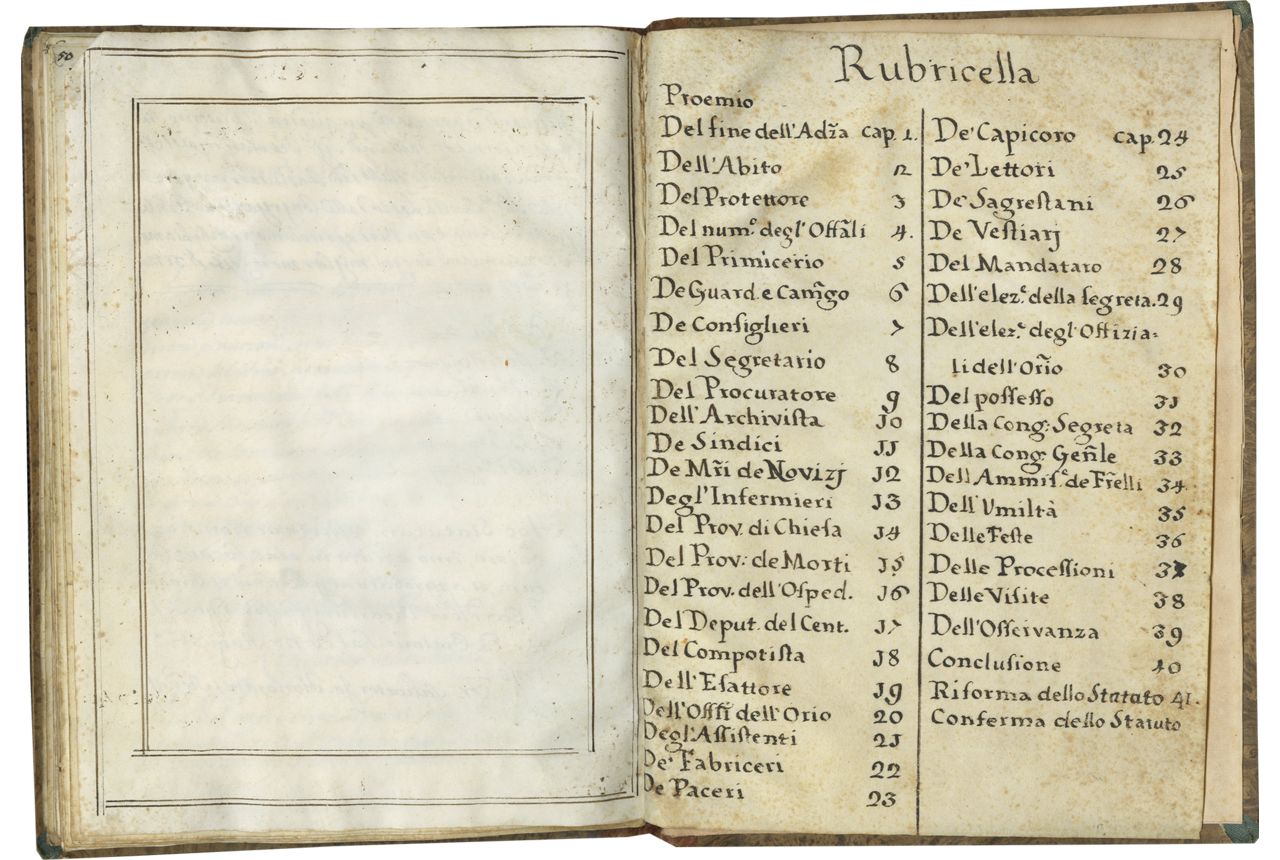 50
Rubricella
Proemio
Del fine dell'Adz̃a cap. 1.
Dell'Abito 2
Del Protettore 3
Del num.º degl'Offãli 4.
Del Primicerio 5
De Guard. e Cam̃go 6
De Consiglieri 7
Del Segretario 8
Del Procuratore 9
Dell'Archivista 10
De Sindici 11
De Mr̃i de Novizj 12
Degl'Infermieri 13
Del Prov. di Chiesa 14
Del Prov. de Morti 15
Del Prov. dell'Osped. 16
Del Deput. del Cent. 17
Del Compotista 18
Dell'Esattore 19
Dell'Offi dell'Orio 20
Degl'Assistenti 21
De' Fabriceri 22
De Paceri 23
De' Capicoro cap. 24
De' Lettori 25
De' Sagrestani 26
De Vestiarj 27
Del Mandataro 28
Dell'elez.e della segreta. 29
Dell'elez.e degl'Offizia=
li dell'Orio 30
Del possesso 31
Della Cong: Segreta 32
Della Cong: Gen̄le 33
Dell'Ammis.e de Fr̃elli 34
Dell'Umiltà 35
Delle Feste 36
Delle Processioni 37
Delle Visite 38
Dell'Osservanza 39
Conclusione 40
Riforma dello Statuto 41.
Conferma dello Statuto